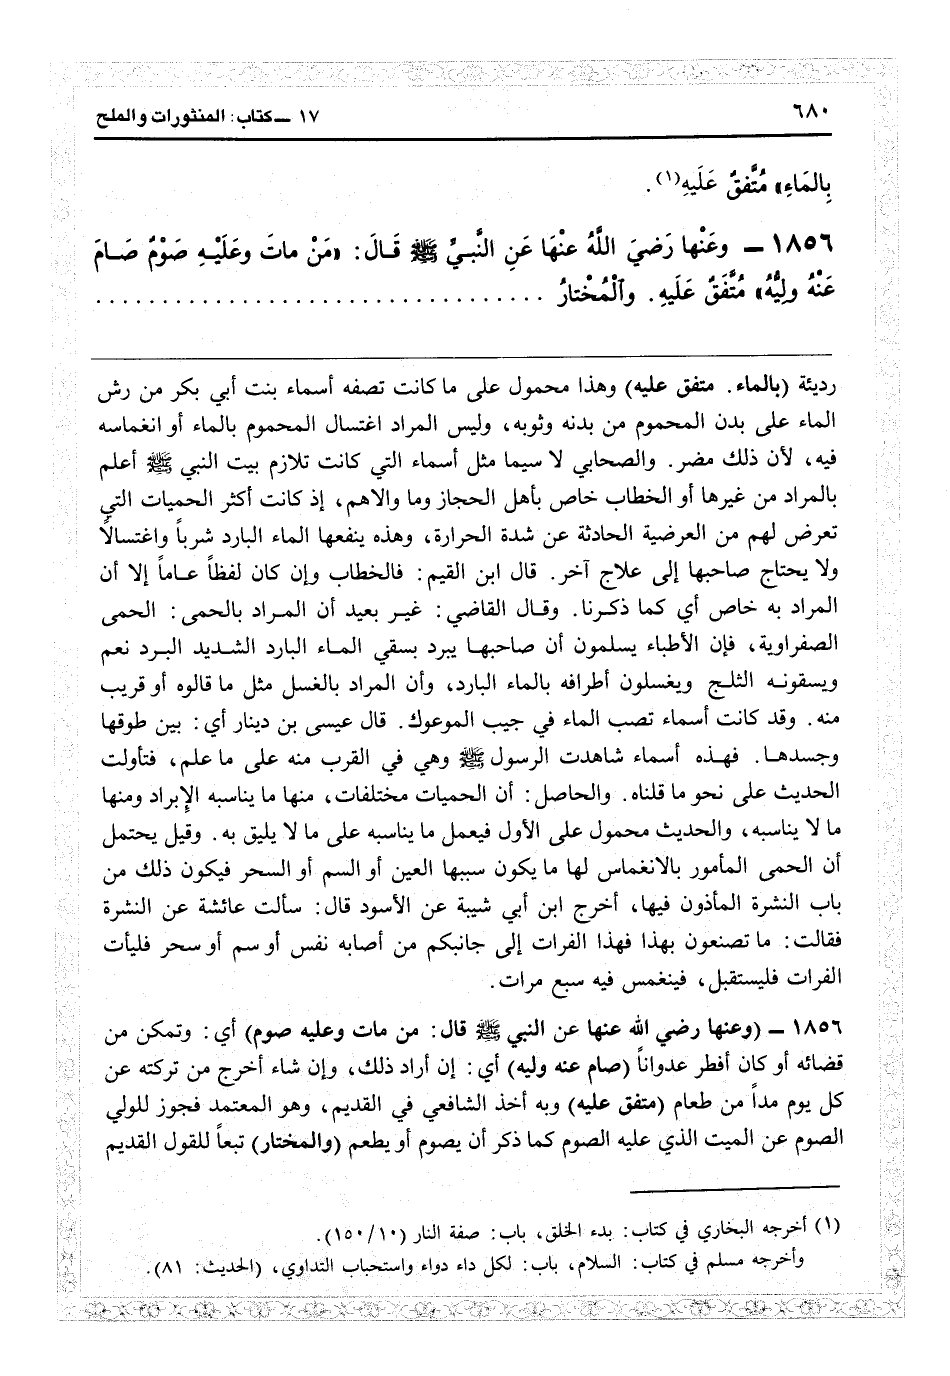 ٦٨٠
١٧ ـ كتاب: المنثورات والملح
بِالمَاءِ» مُتَّفقٌ عَلَيهِ(١).
١٨٥٦ ـ وعَنْها رَضيَ اللَّهُ عنْهَا عَنِ النَّبيِّ ﷺ قَـالَ: «مَنْ ماتَ وعَلَيْـهِ صَوْمٌ صَـامَ
عَنْهُ ولِيُّهُ» مُتَّفَقٌ عَلَيهِ. والْمُخْتارُ .................................
رديئة (بالماء. متفق عليه) وهذا محمول على ما كانت تصفه أسماء بنت أبي بكر من رش
الماء على بدن المحموم من بدنه وثوبه، وليس المراد اغتسال المحموم بالماء أو انغماسه
فيه، لأن ذلك مضر. والصحابي لا سيما مثل أسماء التي كانت تلازم بيت النبي ﷺ أعلم
بالمراد من غيرها أو الخطاب خاص بأهل الحجاز وما والاهم، إذ كانت أكثر الحميات التي
تعرض لهم من العرضية الحادثة عن شدة الحرارة، وهذه ينفعها الماء البارد شرباً واغتسالاً
ولا يحتاج صاحبها إلى علاج آخر. قال ابن القيم: فالخطاب وإن كان لفظاً عـاماً إلا أن
المراد به خاص أي كما ذكـرنا. وقـال القاضي: غيـر بعيد أن المـراد بالحمى: الحمى
الصفراوية، فإن الأطباء يسلمون أن صاحبهـا يبرد بسقي المـاء البارد الشـديد البـرد نعم
ويسقونـه الثلـج ويغسلون أطرافه بالماء البارد، وأن المراد بالغسل مثل ما قالوه أو قريب
منه. وقد كانت أسماء تصب الماء في جيب الموعوك. قال عيسى بن دينار أي: بين طوقها
وجسدهـا. فهـذه أسماء شاهدت الرسول ﷺ وهي في القرب منه على ما علم، فتأولت
الحديث على نحو ما قلناه. والحاصل: أن الحميات مختلفات، منها ما يناسبه الإبراد ومنها
ما لا يناسبه، والحديث محمول على الأول فيعمل ما يناسبه على ما لا يليق به. وقيل يحتمل
أن الحمى المأمور بالانغماس لها ما يكون سببها العين أو السم أو السحر فيكون ذلك من
باب النشرة المأذون فيها، أخرج ابن أبي شيبة عن الأسود قال: سألت عائشة عن النشرة
فقالت: ما تصنعون بهذا فهذا الفرات إلى جانبكم من أصابه نفس أو سم أو سحر فليأت
الفرات فليستقبل، فينغمس فيه سبع مرات.
١٨٥٦ ـ (وعنها رضي الله عنها عن النبي ﷺ قال: من مات وعليه صوم) أي: وتمكن من
قضائه أو كان أفطر عدواناً (صام عنه وليه) أي: إن أراد ذلك، وإن شاء أخرج من تركته عن
كل يوم مداً من طعام (متفق عليه) وبه أخذ الشافعي في القديم، وهو المعتمد فجوز للولي
الصوم عن الميت الذي عليه الصوم كما ذكر أن يصوم أو يطعم (والمختار) تبعاً للقول القديم
(١) أخرجه البخاري في كتاب: بدء الخلق، باب: صفة النار (١٥٠/١٠).
وأخرجه مسلم في كتاب: السلام، باب: لكل داء دواء واستحباب التداوي، (الحديث: ٨١).